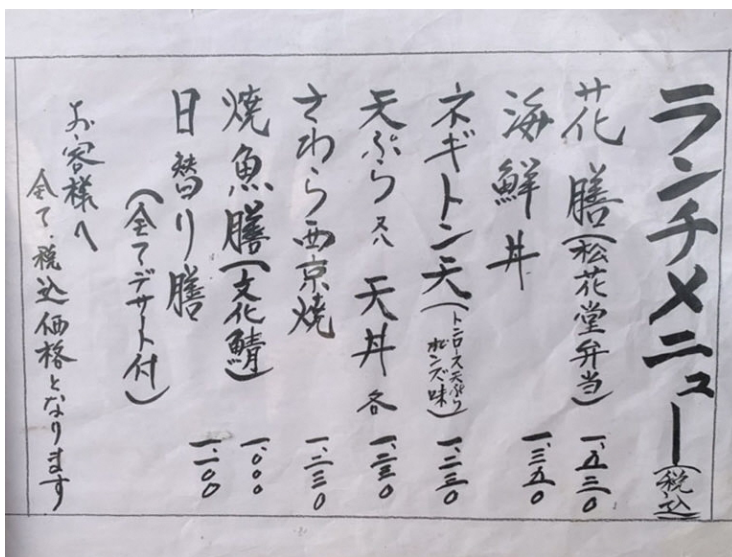 ランチメニュー(税込)
花膳(松花堂弁当) 一、五三〇
海鮮丼 一、三五〇
ネギトン天(トンロース天ぷら ポンズ味) 一、二三〇
天ぷら又ハ天丼各 一、二三〇
さわら西京焼 一、二三〇
焼魚膳(文化鯖) 一、〇〇〇
日替り膳 一、一〇〇
(全てデザート付)
お客様へ
全て税込価格となります